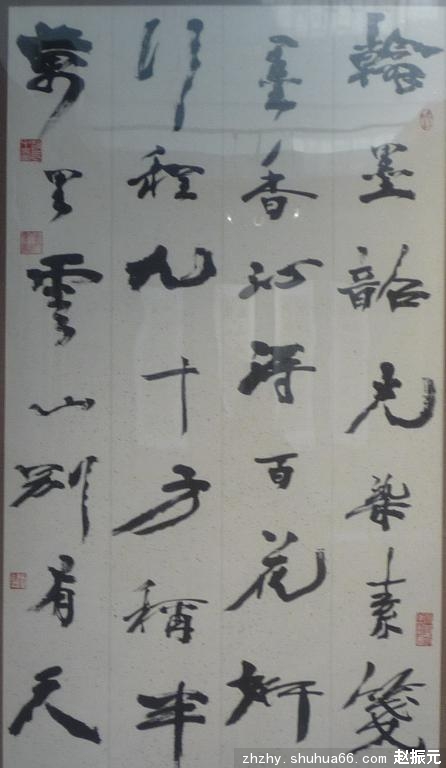 翰墨韶光染素箋
墨香沁得百花妍
行程九十方稱半
萬里雲山別有天
zhzhy.shuhua66.com 赵振元